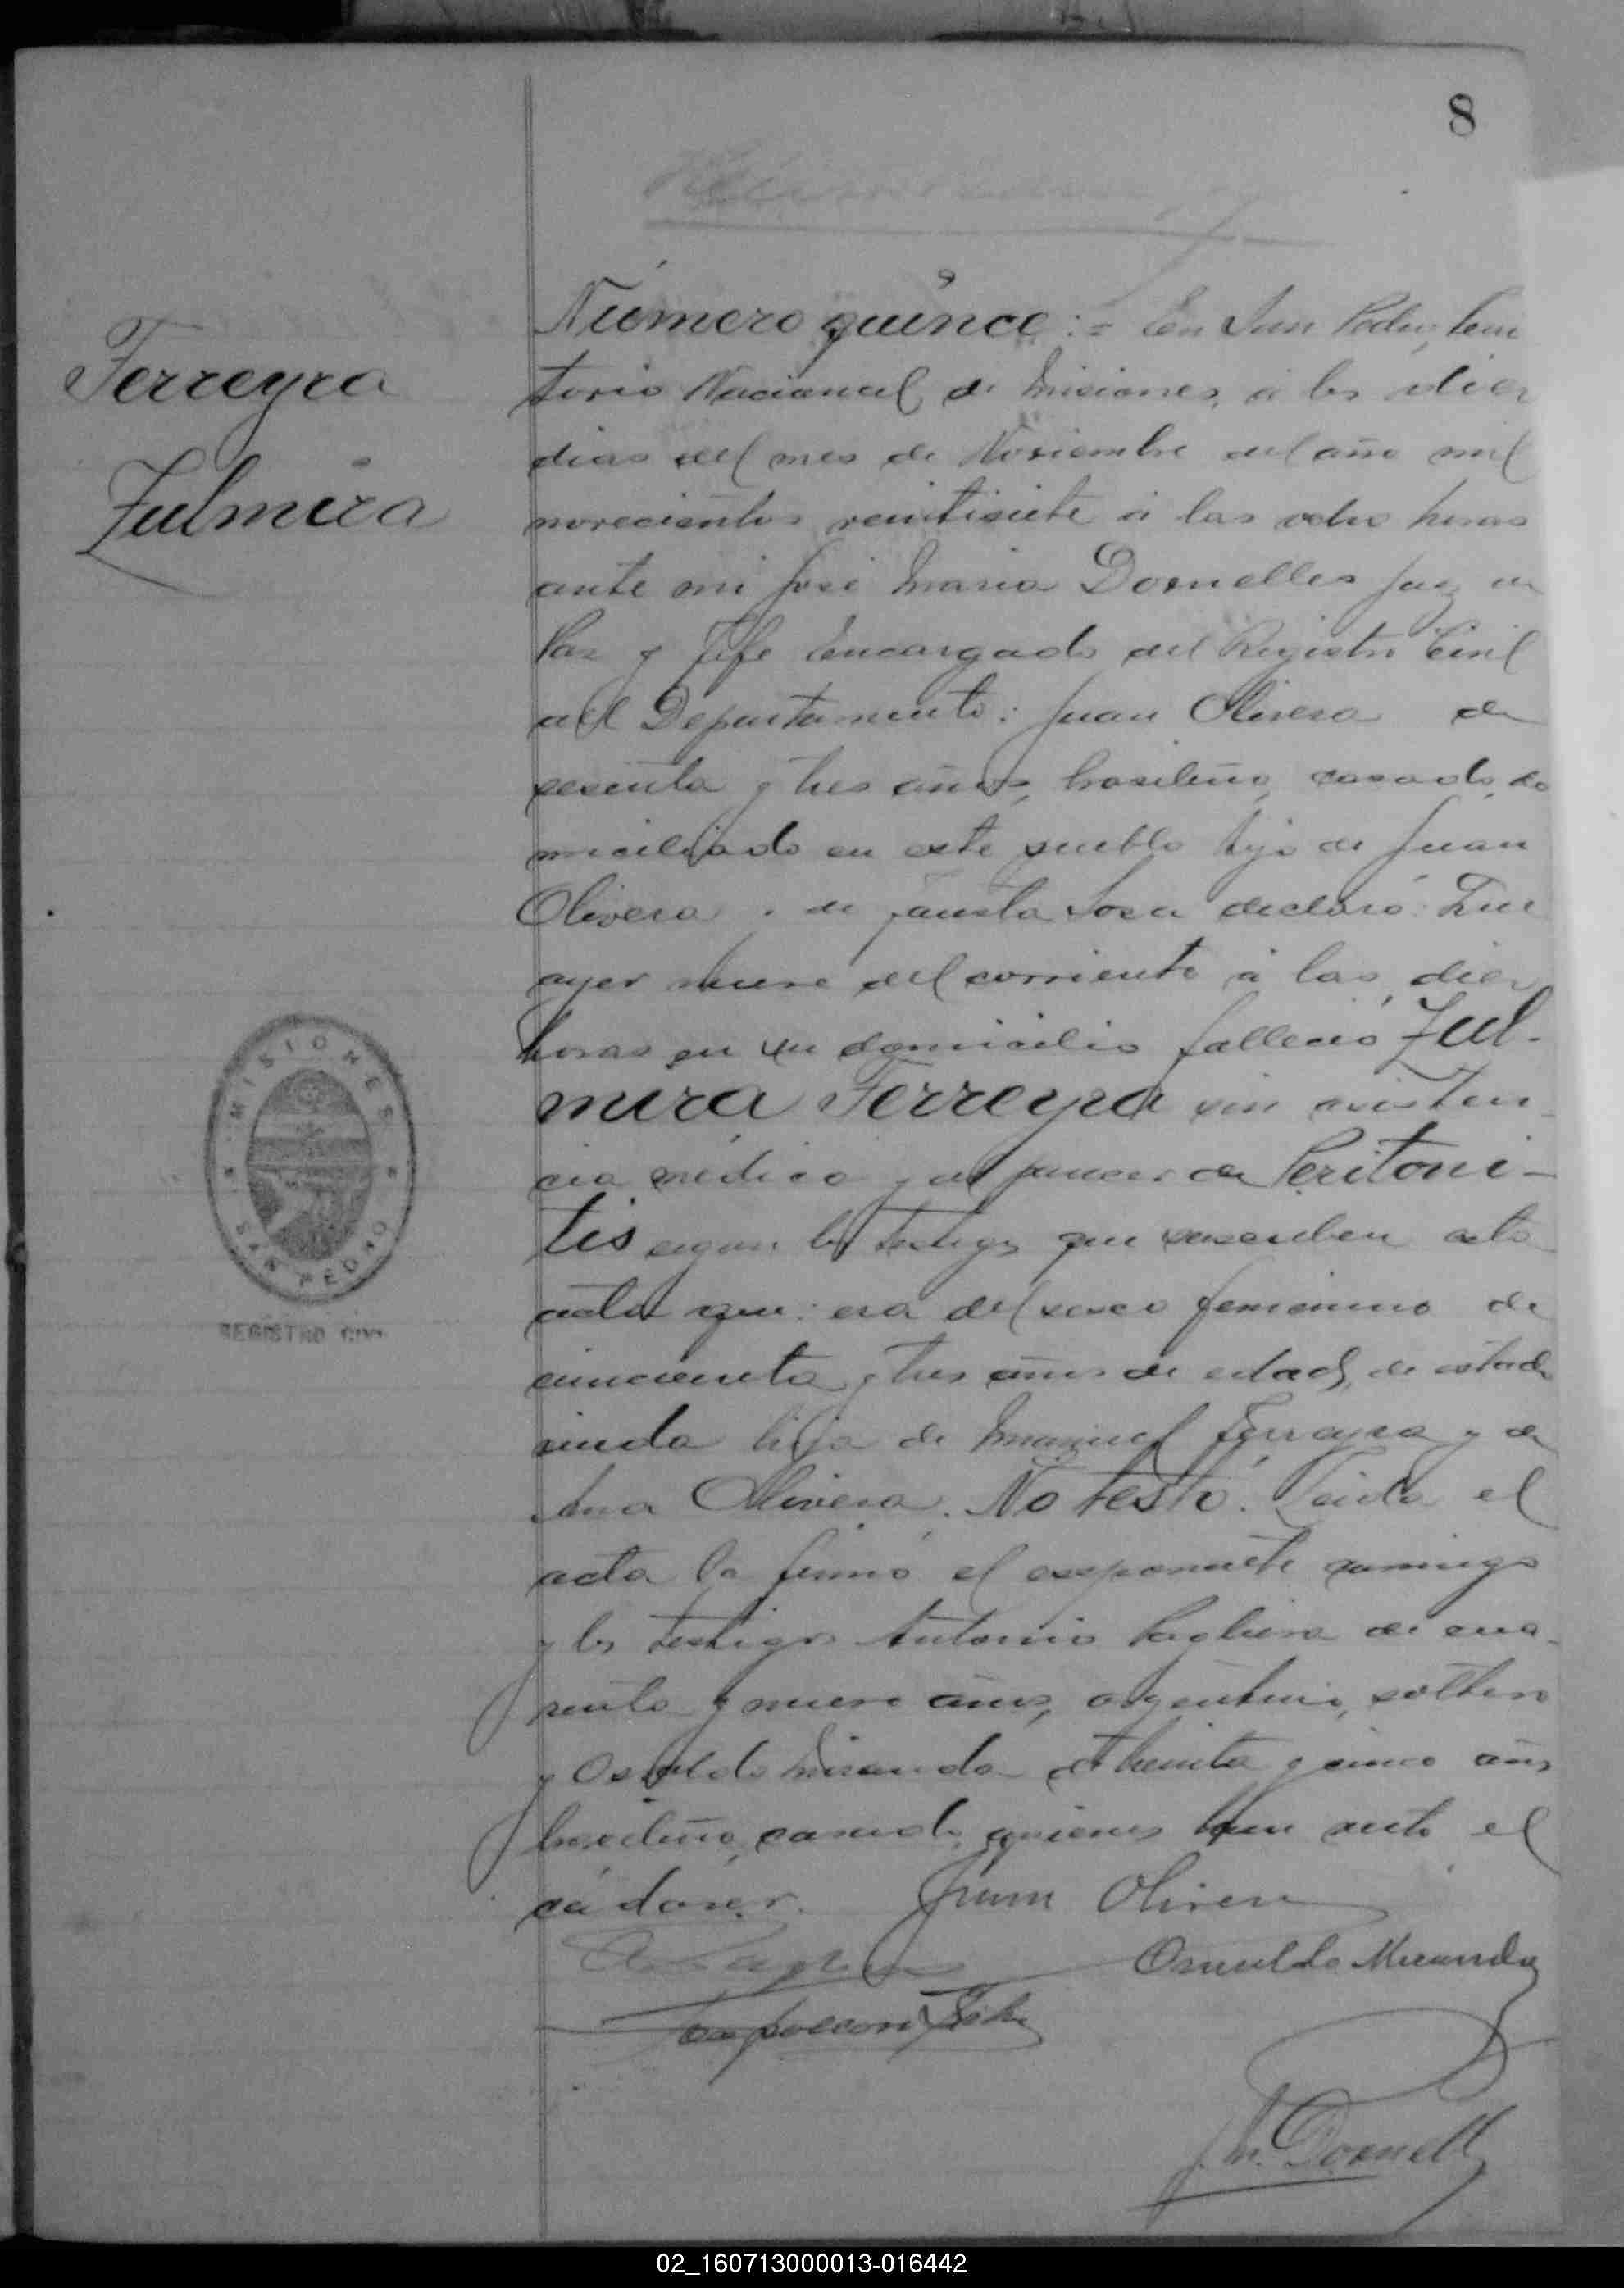 8
Ferreyra
Zulmira
Número quince := En San Pedro, terri
torio Nacional de Misiones, á los diez
dias del mes de Noviembre del año mil
novecientos veintisiete á las ocho horas
ante mi José Maria Dornelles Juez de
Paz y Jefe Encargado del Registro Civil
del Departamento: Juan Olivera de
sesenta y tres años, brasileño, casado, do
miciliado en este pueblo hijo de Juan
Olivera y de Fausta Sosa declaró: Que
ayer nueve del corriente á las diez
horas en su domicilio falleció Zul-
mira Ferreyra sin asisten-
cia médica y al parecer de Peritoni-
tis segun los testigos que suscriben esta
acta que: era del sexo femenino de
cincuenta y tres años de edad, de estado
viuda hija de Manuel Ferreyra y de
Ana Olivera. No testó. Leida el
acta la firmó el exponente conmigo
y los testigos Antonio de cua-
renta y nueve años, argentino, soltero
y Osvaldo Miranda de treinta y cinco años
brasileño, casado, quienes han visto el
cádaver. Juan Olivera
Osvaldo Miranda
J. M. Dornell
MISIONES
SAN PEDRO
REGISTRO CIVIL
02_160713000013-016442